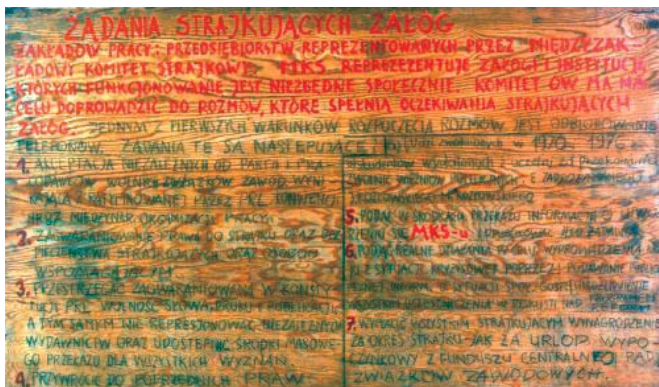 ŻĄDANIA STRAJKUJĄCYCH ZAŁÓG
ZAKŁADÓW PRACY: PRZEDSIĘBIORSTW REPREZENTOWANYCH PRZEZ MIĘDZYZAK-
ŁADOWY KOMITET STRAJKOWY. REPREZENTUJE ZAŁOGI I INSTYTUCJE,
KTÓRYCH FUNKCJONOWANIE JEST NIEZBĘDNE SPOŁECZNIE. KOMITET ÓW MA NA
CELU DOPROWADZIĆ DO ROZMÓW, KTÓRE SPEŁNIĄ OCZEKIWANIA STRAJKUJĄCYCH
ZAŁÓG. JEDNYM Z PIERWSZYCH WARUNKÓW ROZPOCZĘCIA ROZMÓW JEST ODBLOKOWANIE
TELEFONÓW. ŻĄDANIA TE SĄ NASTĘPUJĄCE:
1. AKCEPTACJA NIEZALEŻNYCH OD PARTII I PRA-
CODAWCÓW WOLNYCH ZWIĄZKÓW ZAWOD. WYNI-
KAJĄCA Z RATYFIKOWANEJ PRZEZ PRL KONWENCJI
MIĘDZYNAR. ORGANIZACJI PRACY.
2. ZAGWARANTOWANIE PRAWA DO STRAJKU ORAZ BEZ-
PIECZEŃSTWA STRAJKUJĄCYCH ORAZ OSOBOM
WSPOMAGAJĄCYM
3. PRZESTRZEGAĆ ZAGWARANTOWANĄ W KONSTY-
TUCJI PRL WOLNOŚĆ SŁOWA, DRUKU I PUBLIKACJI,
A TYM SAMYM NIE REPRESJONOWAĆ NIEZALEŻNYCH
WYDAWNICTW ORAZ UDOSTĘPNIĆ ŚRODKI MASOWE-
GO PRZEKAZU DLA WSZYSTKICH WYZNAŃ.
4. PRZYWRÓCIĆ DO POPRZEDNICH PRAW
ludzi zwolnionych w 1970 1976
studentów wydalonych z uczelni za przekonania
5. PODAĆ W ŚRODKACH PRZEKAZU INFORMACJĘ O
MKS-u
6. PODJĄĆ REALNE DZIAŁANIA
SYTUACJI KRYZYSOWEJ POPRZEZ: PODAWANIE
INFORM. O SYTUACJI UMOŻLIWIENIE
UCZESTNICZENIA W DYSKUSJI NAD PROGRAMEM
7. WYPŁACIĆ WSZYSTKIM STRAJKUJĄCYM WYNAGRODZENIE
ZA OKRES STRAJKU - JAK ZA URLOP WYPO-
CZYNKOWY Z FUNDUSZU CENTRALNEJ RADY
ZWIĄZKÓW ZAWODOWYCH.